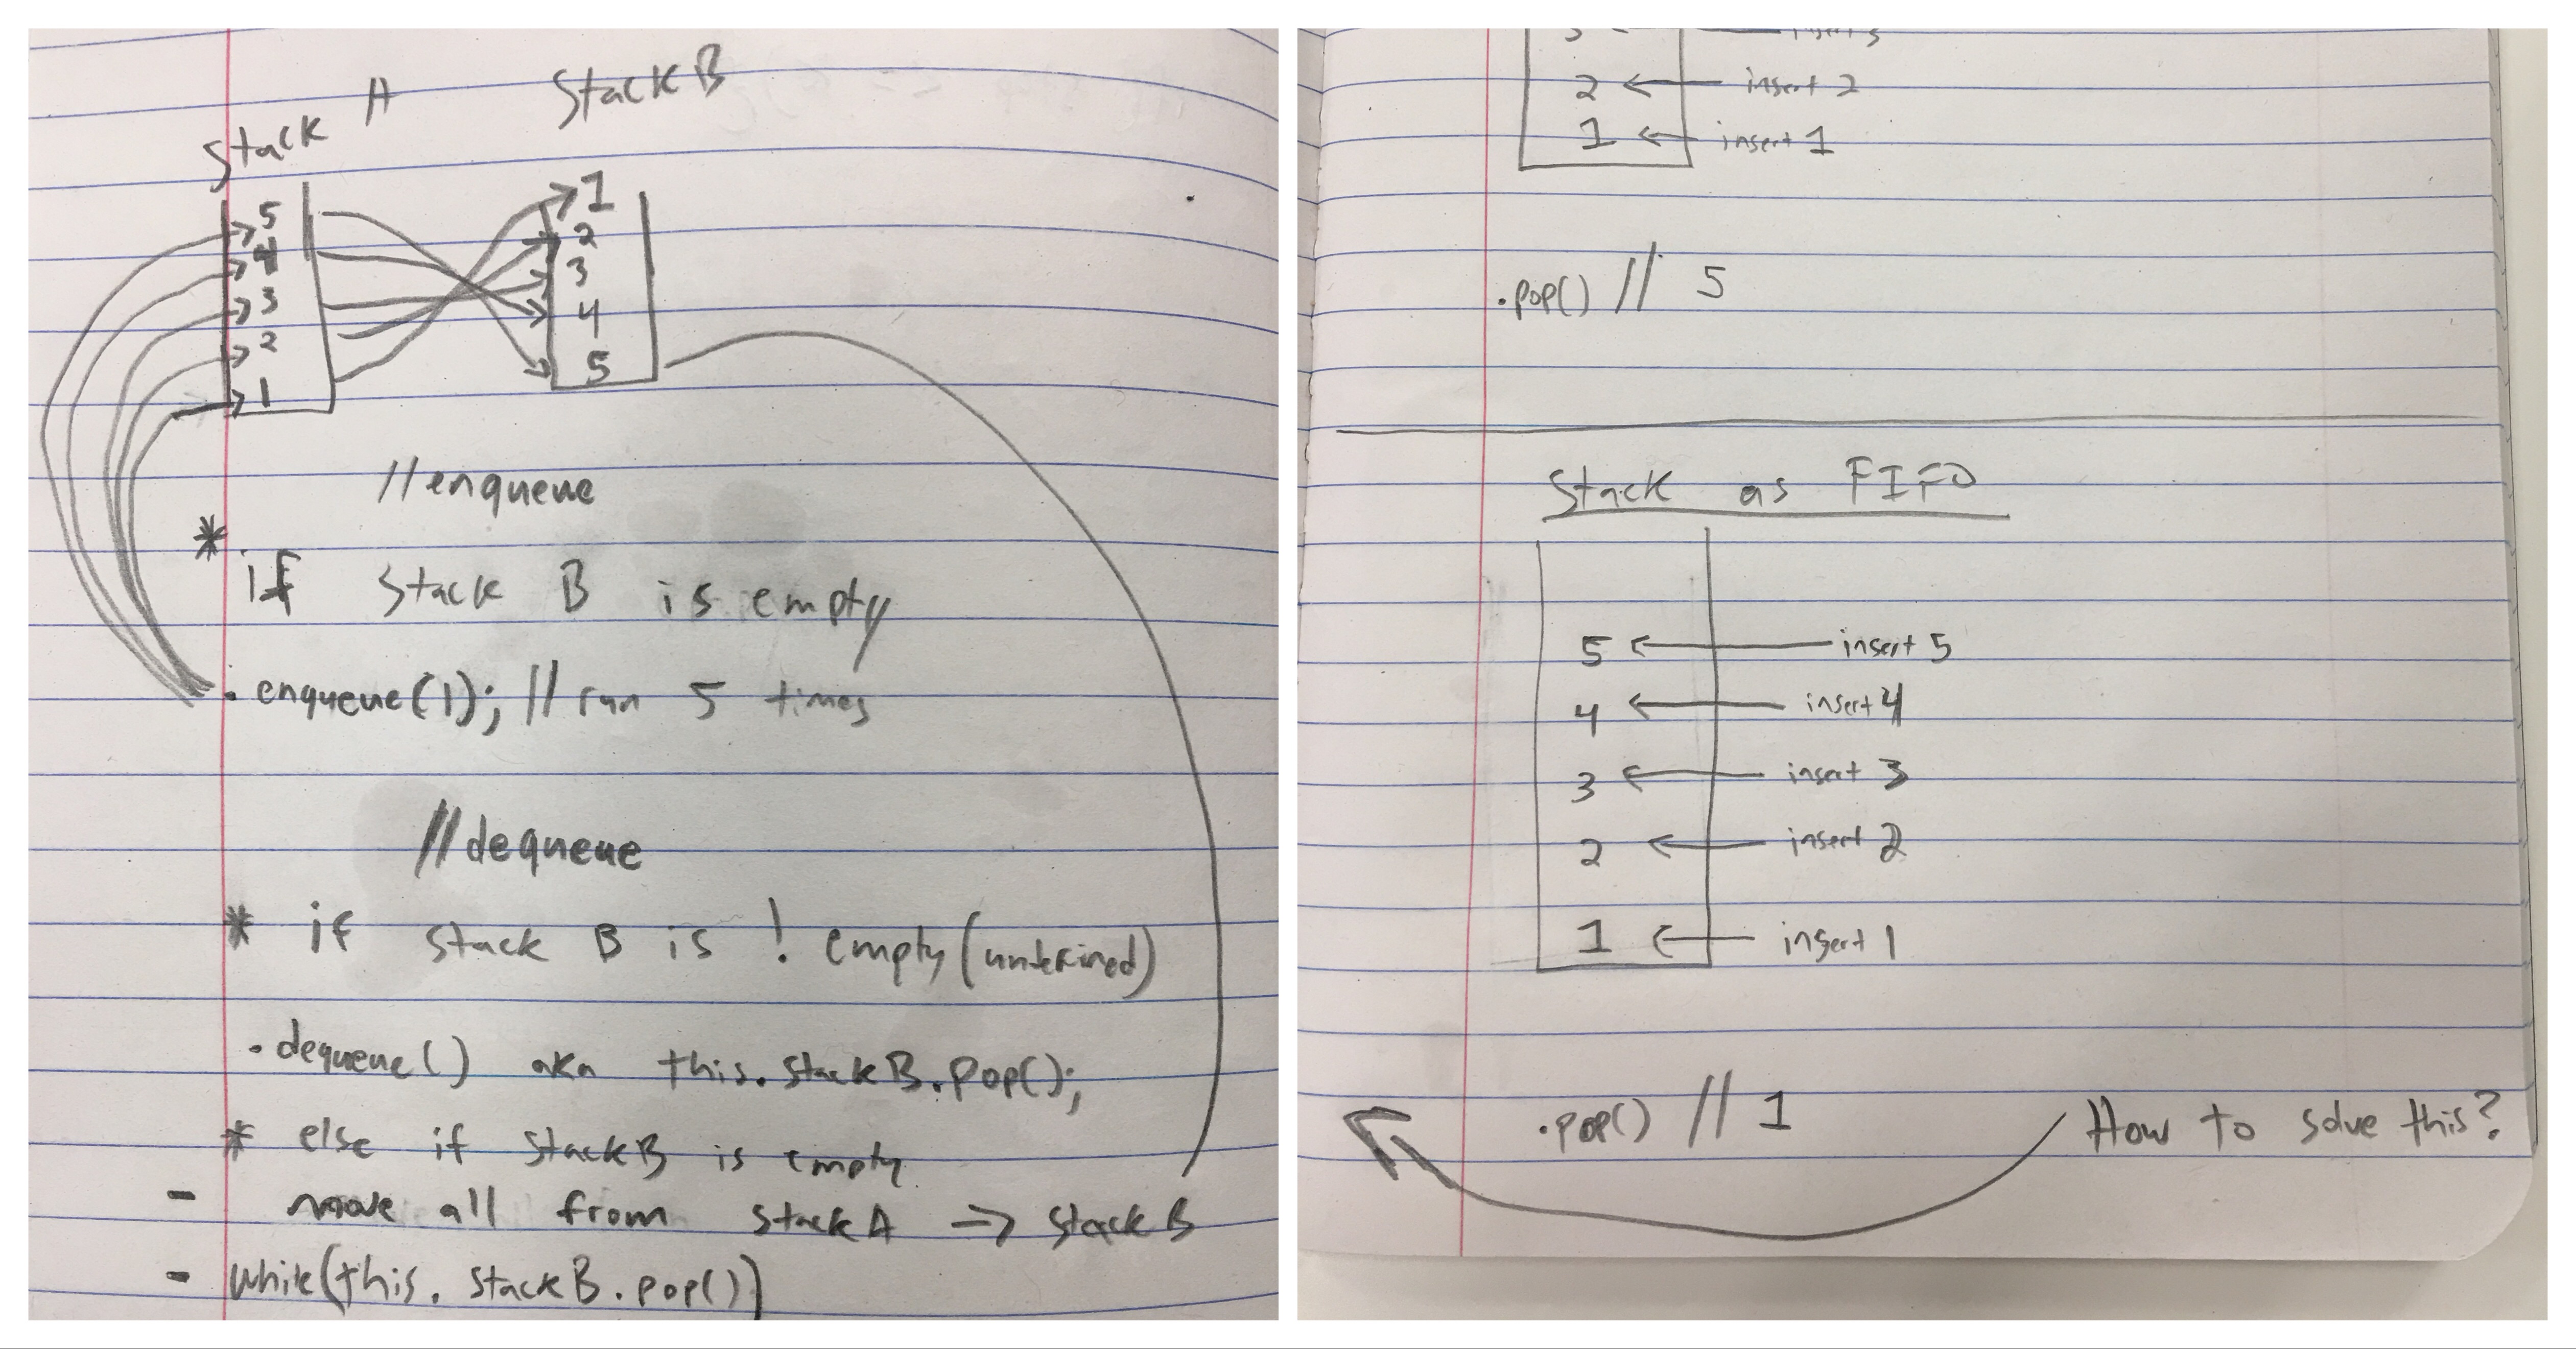 Stack A Stack B
5 1
4 2
3 3
2 4
1 5
//enqueue
* if Stack B is empty
. enqueue(1); // run 5 times
//dequeue
* if stack B is ! empty (undefined)
. dequeue() aka this.stackB.pop();
* else if stackB is empty
- move all from stackA => stackB
- while(this.stackB.pop())
2 ← insert 2
1 ← insert 1
.pop() // 5
Stack as FIFO
5 ← insert 5
4 ← insert 4
3 ← insert 3
2 ← insert 2
1 ← insert 1
.pop() // 1 How to solve this?